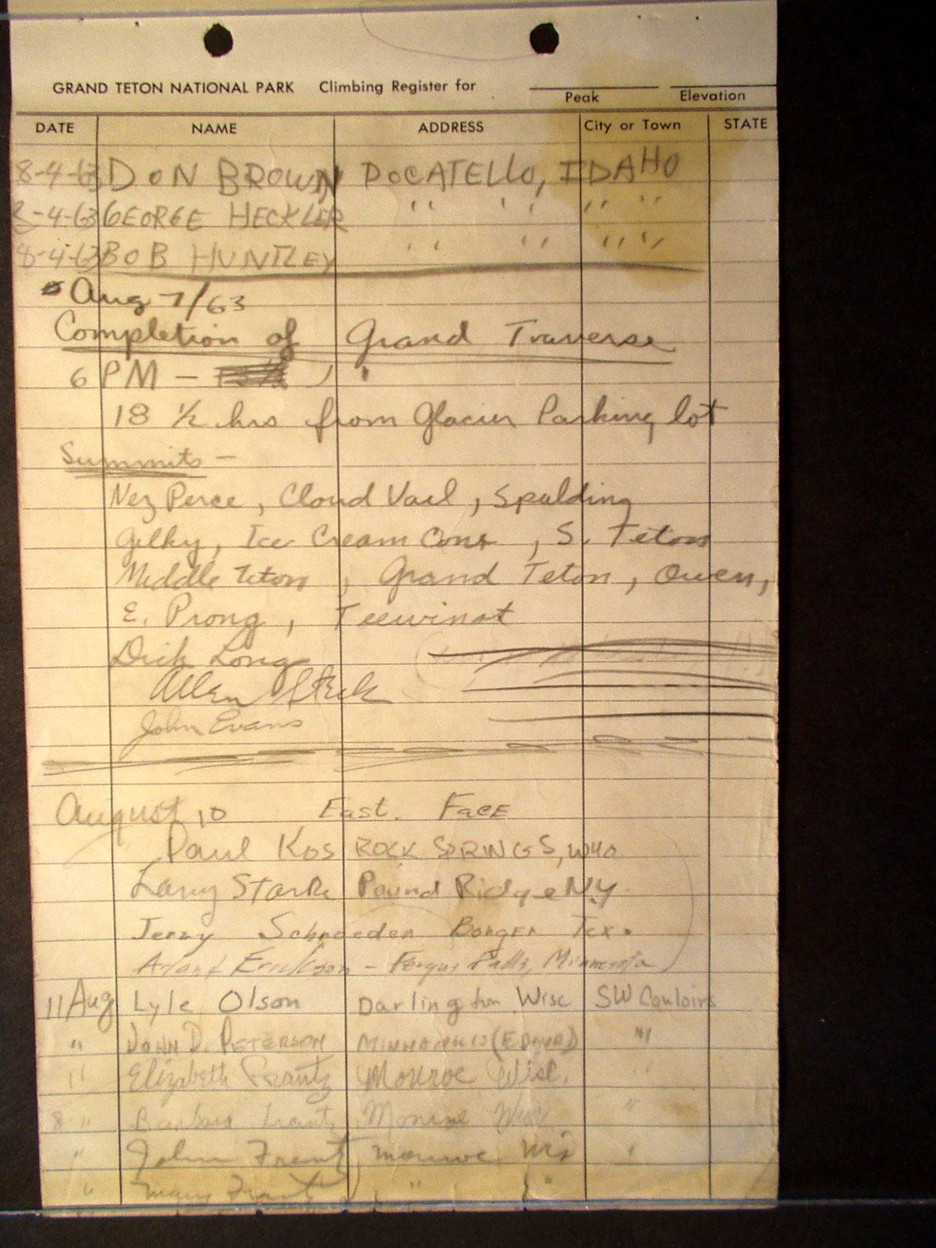 GRAND TETON NATIONAL PARK Climbing Register for
Peak Elevation
DATE NAME ADDRESS City or Town STATE
8-4-63 DON BROWN POCATELLO, IDAHO
8-4-63 GEORGE HECKLER " " " "
8-4-63 BOB HUNTLEY " " " "
Aug 7/63
Completion of Grand Traverse
6 PM –
18 ½ hrs from Glacier Parking lot
Summits –
Nez Perce, Cloud Vail, Spalding
Gilky, Ice Cream Cone, S. Teton
Middle Teton, Grand Teton, Owen,
E. Prong, Teewinot
Dick Long
Allen Steck
John Evans
August 10 East. Face
Paul Kos ROCK SPRINGS, WYO.
Larry Starke Pound Ridge NY.
Jerry Schroeder Borger Tex.
Erickson – Fergus Falls, Minnesota
11 Aug Lyle Olson Darlington Wisc SW Couloirs
" JOHN D. PETERSON MINNEAPOLIS (EDINA) "
" Elizabeth Frantz Monroe Wisc. "
8 " Barbara Frantz Monroe Wisc "
" John Frantz, Monroe Wis "
" Mary Frantz " "